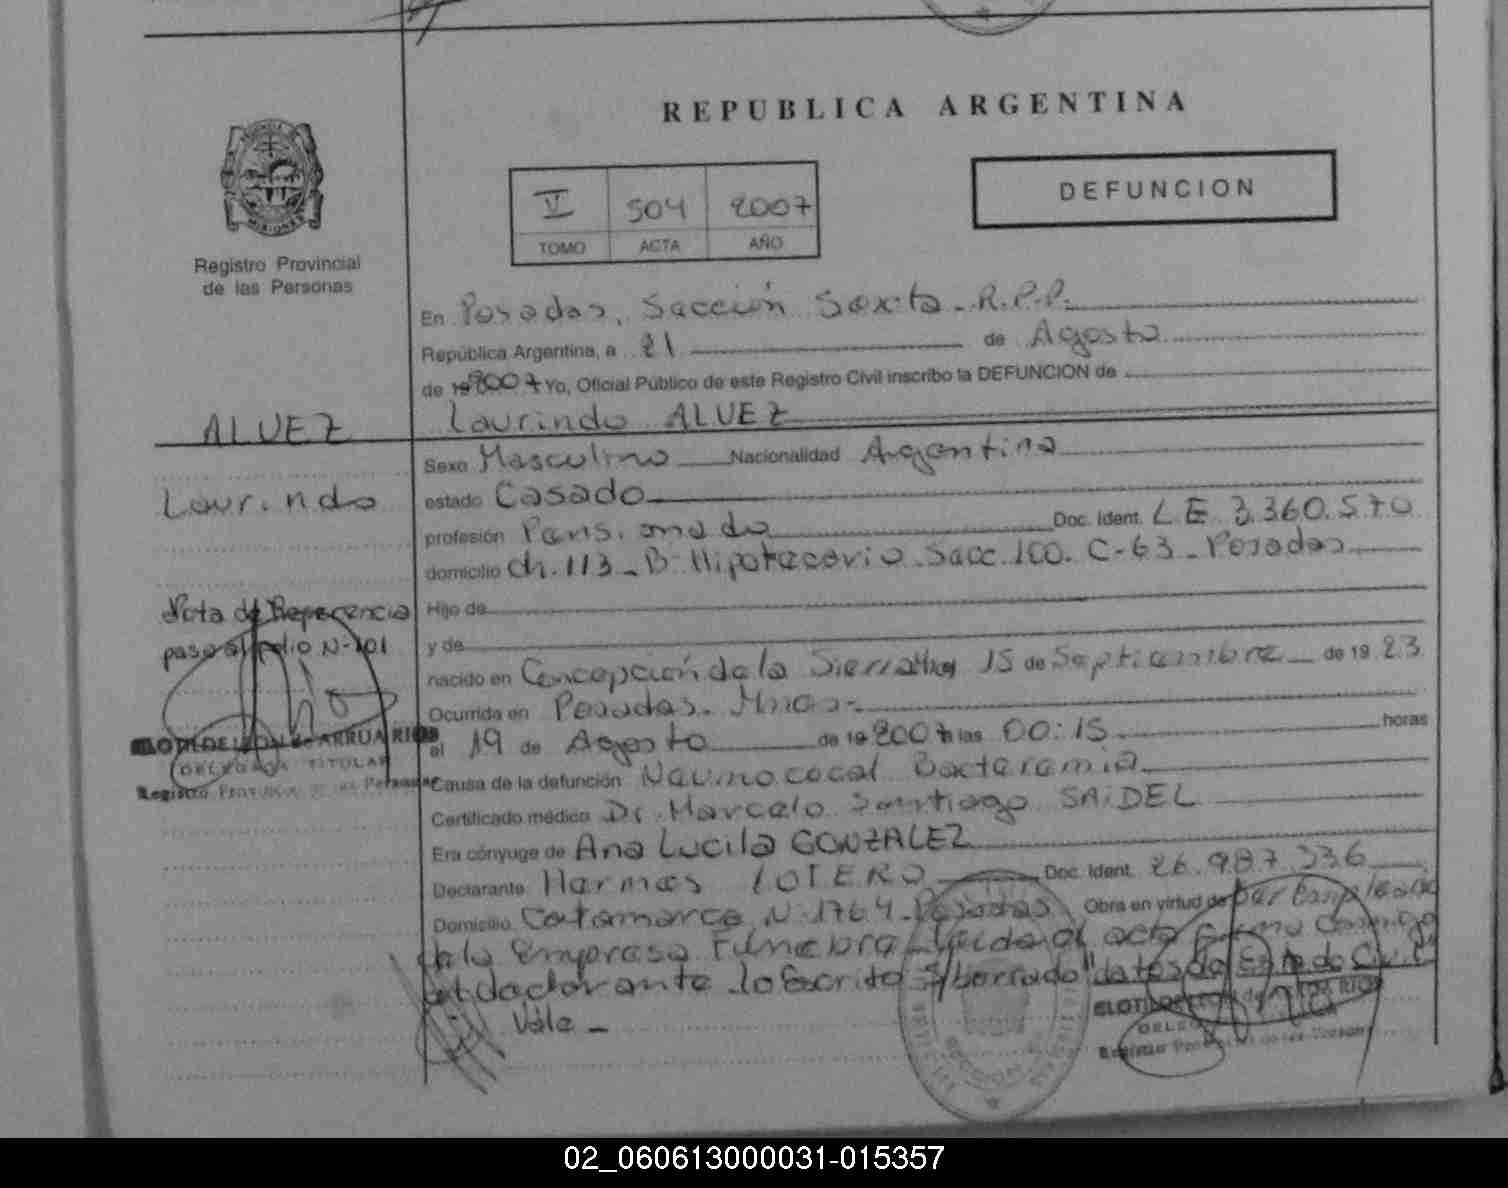 REPUBLICA ARGENTINA
V 504 2007
TOMO ACTA AÑO
DEFUNCION
MISIONES
Registro Provincial
de las Personas
En Posadas, Sección Sexta - R.P.P.
República Argentina, a 21 de Agosto
de 19 2007 Yo, Oficial Público de este Registro Civil inscribo la DEFUNCION de
Laurindo ALVEZ
ALVEZ
Laurindo
Sexo Masculino Nacionalidad Argentina
estado Casado
profesión Pensionado Doc. Ident. LE 3.360.570
domicilio ch. 113 - B: Hipotecario Secc. 100. C-63 - Posadas
Nota de Referencia
pase al folio N-101
Hijo de
y de
nacido en Concepción de la Sierra Mnes 15 de Septiembre de 19 23
Ocurrida en Posadas. Mnes-
el 19 de Agosto de 19 2007 a las 00:15 horas
DELEGADA TITULAR
Registro Provincial de las Personas
Causa de la defunción Neumococal Bacteremia
Certificado médico Dr. Marcelo Santiago SAIDEL
Era cónyuge de Ana Lucila GONZALEZ
Declarante Hermes LOTERO Doc. Ident. 26.987.336
Domicilio Catamarca N: 1764 - Posadas Obra en virtud de ser Empleado
de la Empresa Funebra - Leida el acta firma Conmigo
el declarante - lo Escrito s/borrado "datos de Estado Civil"
Vale -
Registro Provincial de las Personas
02_060613000031-015357